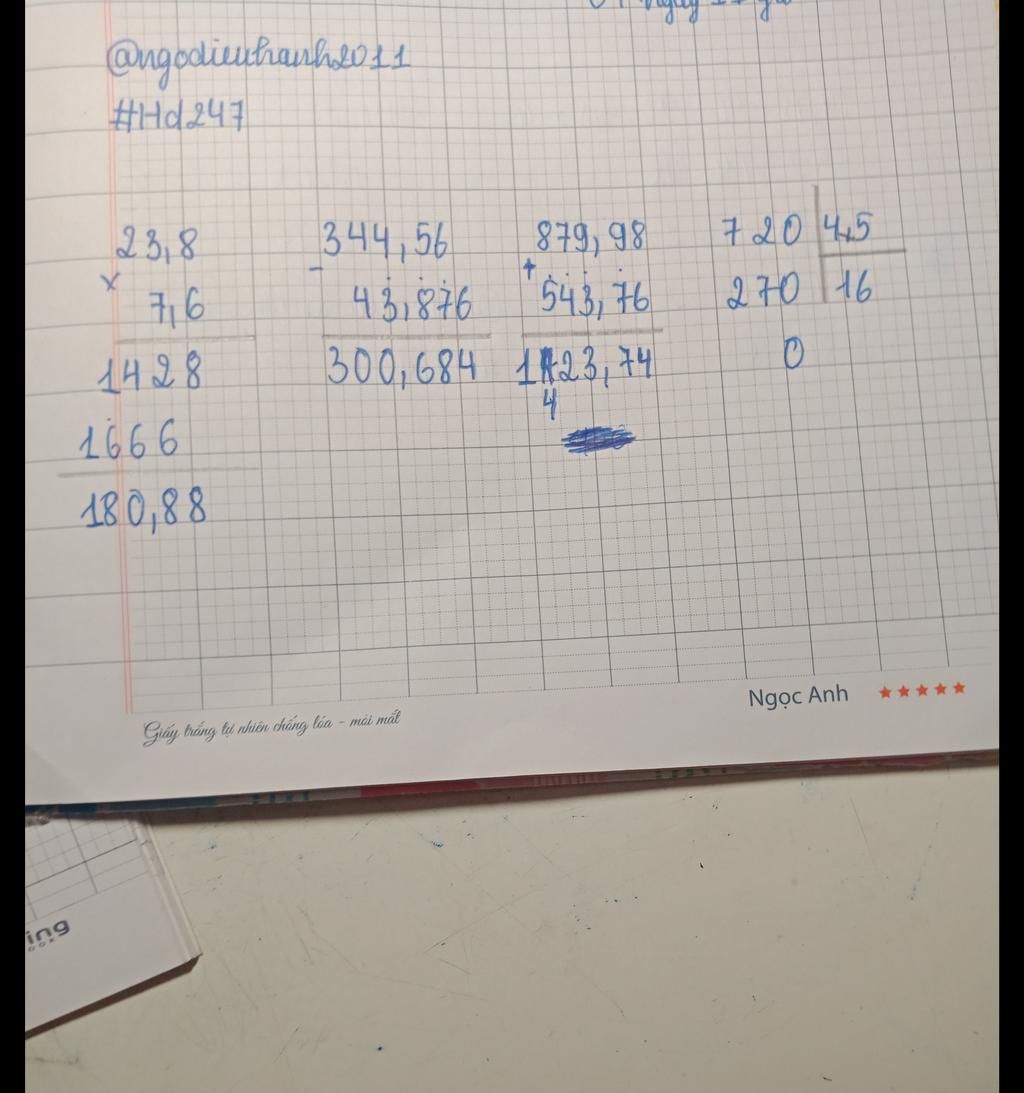 @ngodieuhanh2011
#Hd247
23,8
×
7,6
1428
1666
180,88
344,56
-
43,876
300,684
879,98
+
543,76
1423,74
720 4,5
270 16
0
Ngọc Anh
Giấy trắng tự nhiên chống lóa - mỏi mắt
ing